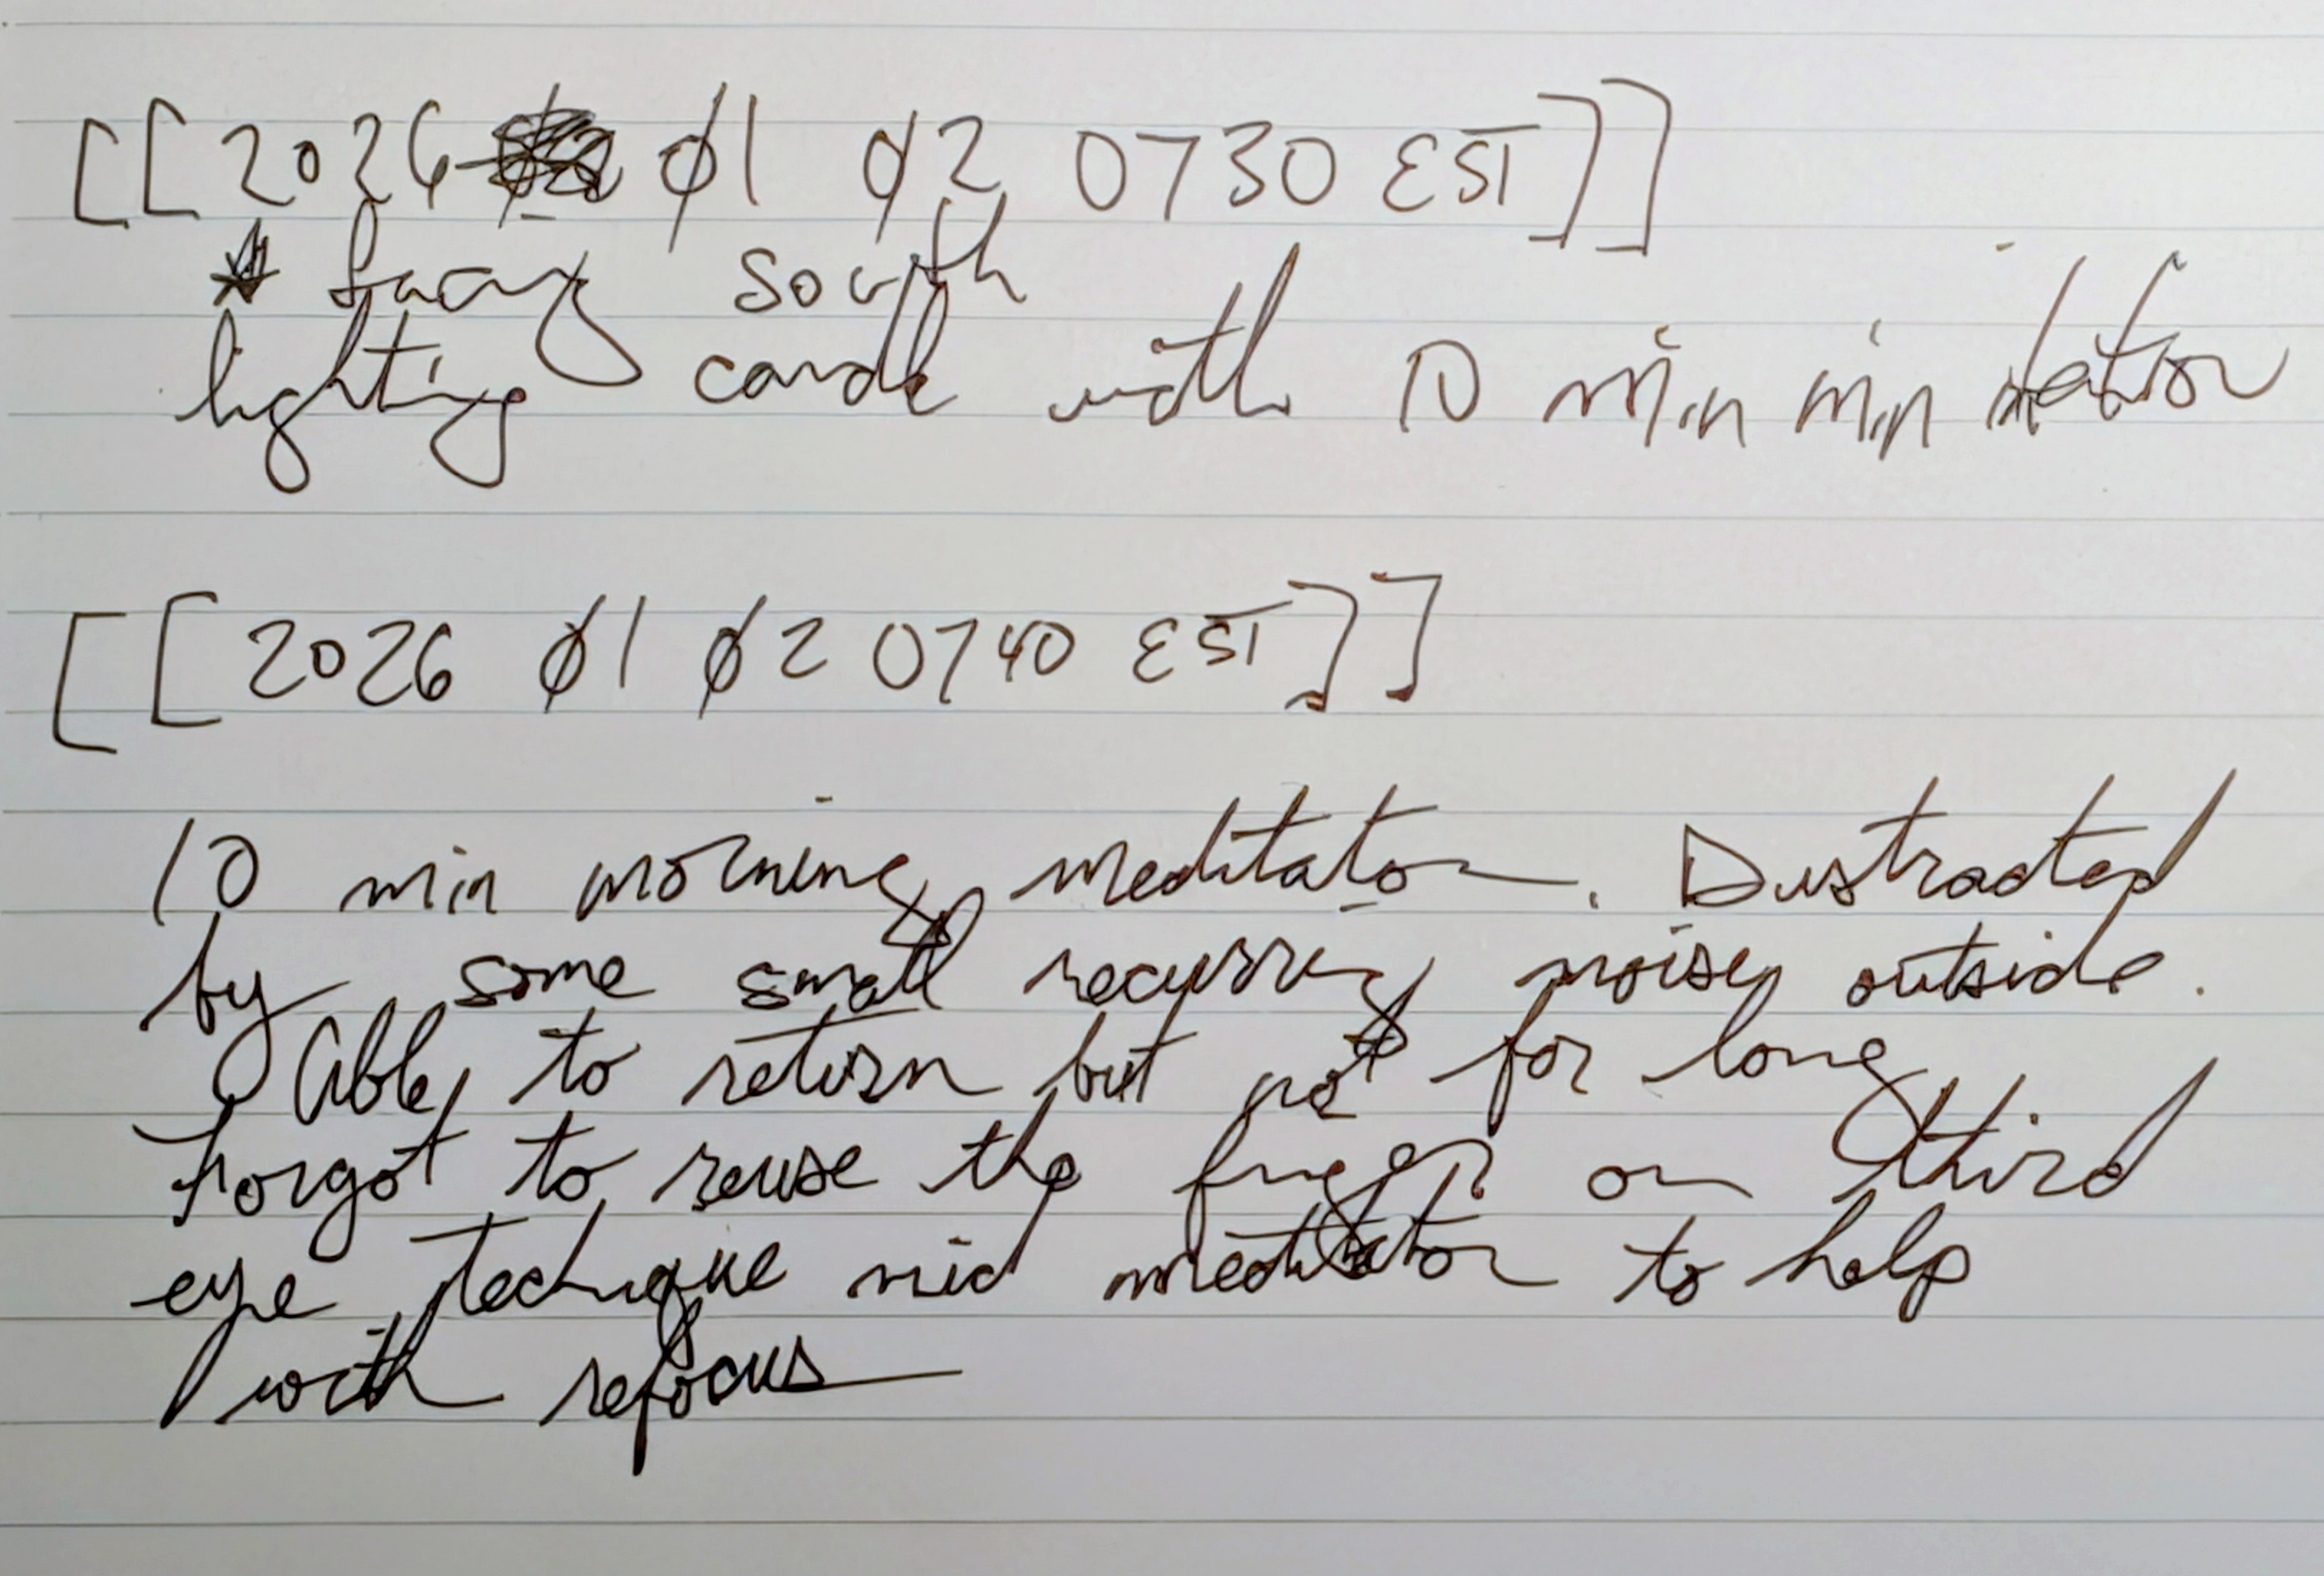 [[2026 01 02 0730 EST]]
* facing south
lighting candle with 10 min min
[[2026 01 02 0740 EST]]
10 min morning meditation. Distracted
by some small recurring noise outside.
Able to return but not for long
Forgot to reuse the finger on third
eye technique mid meditation to help
with refocus